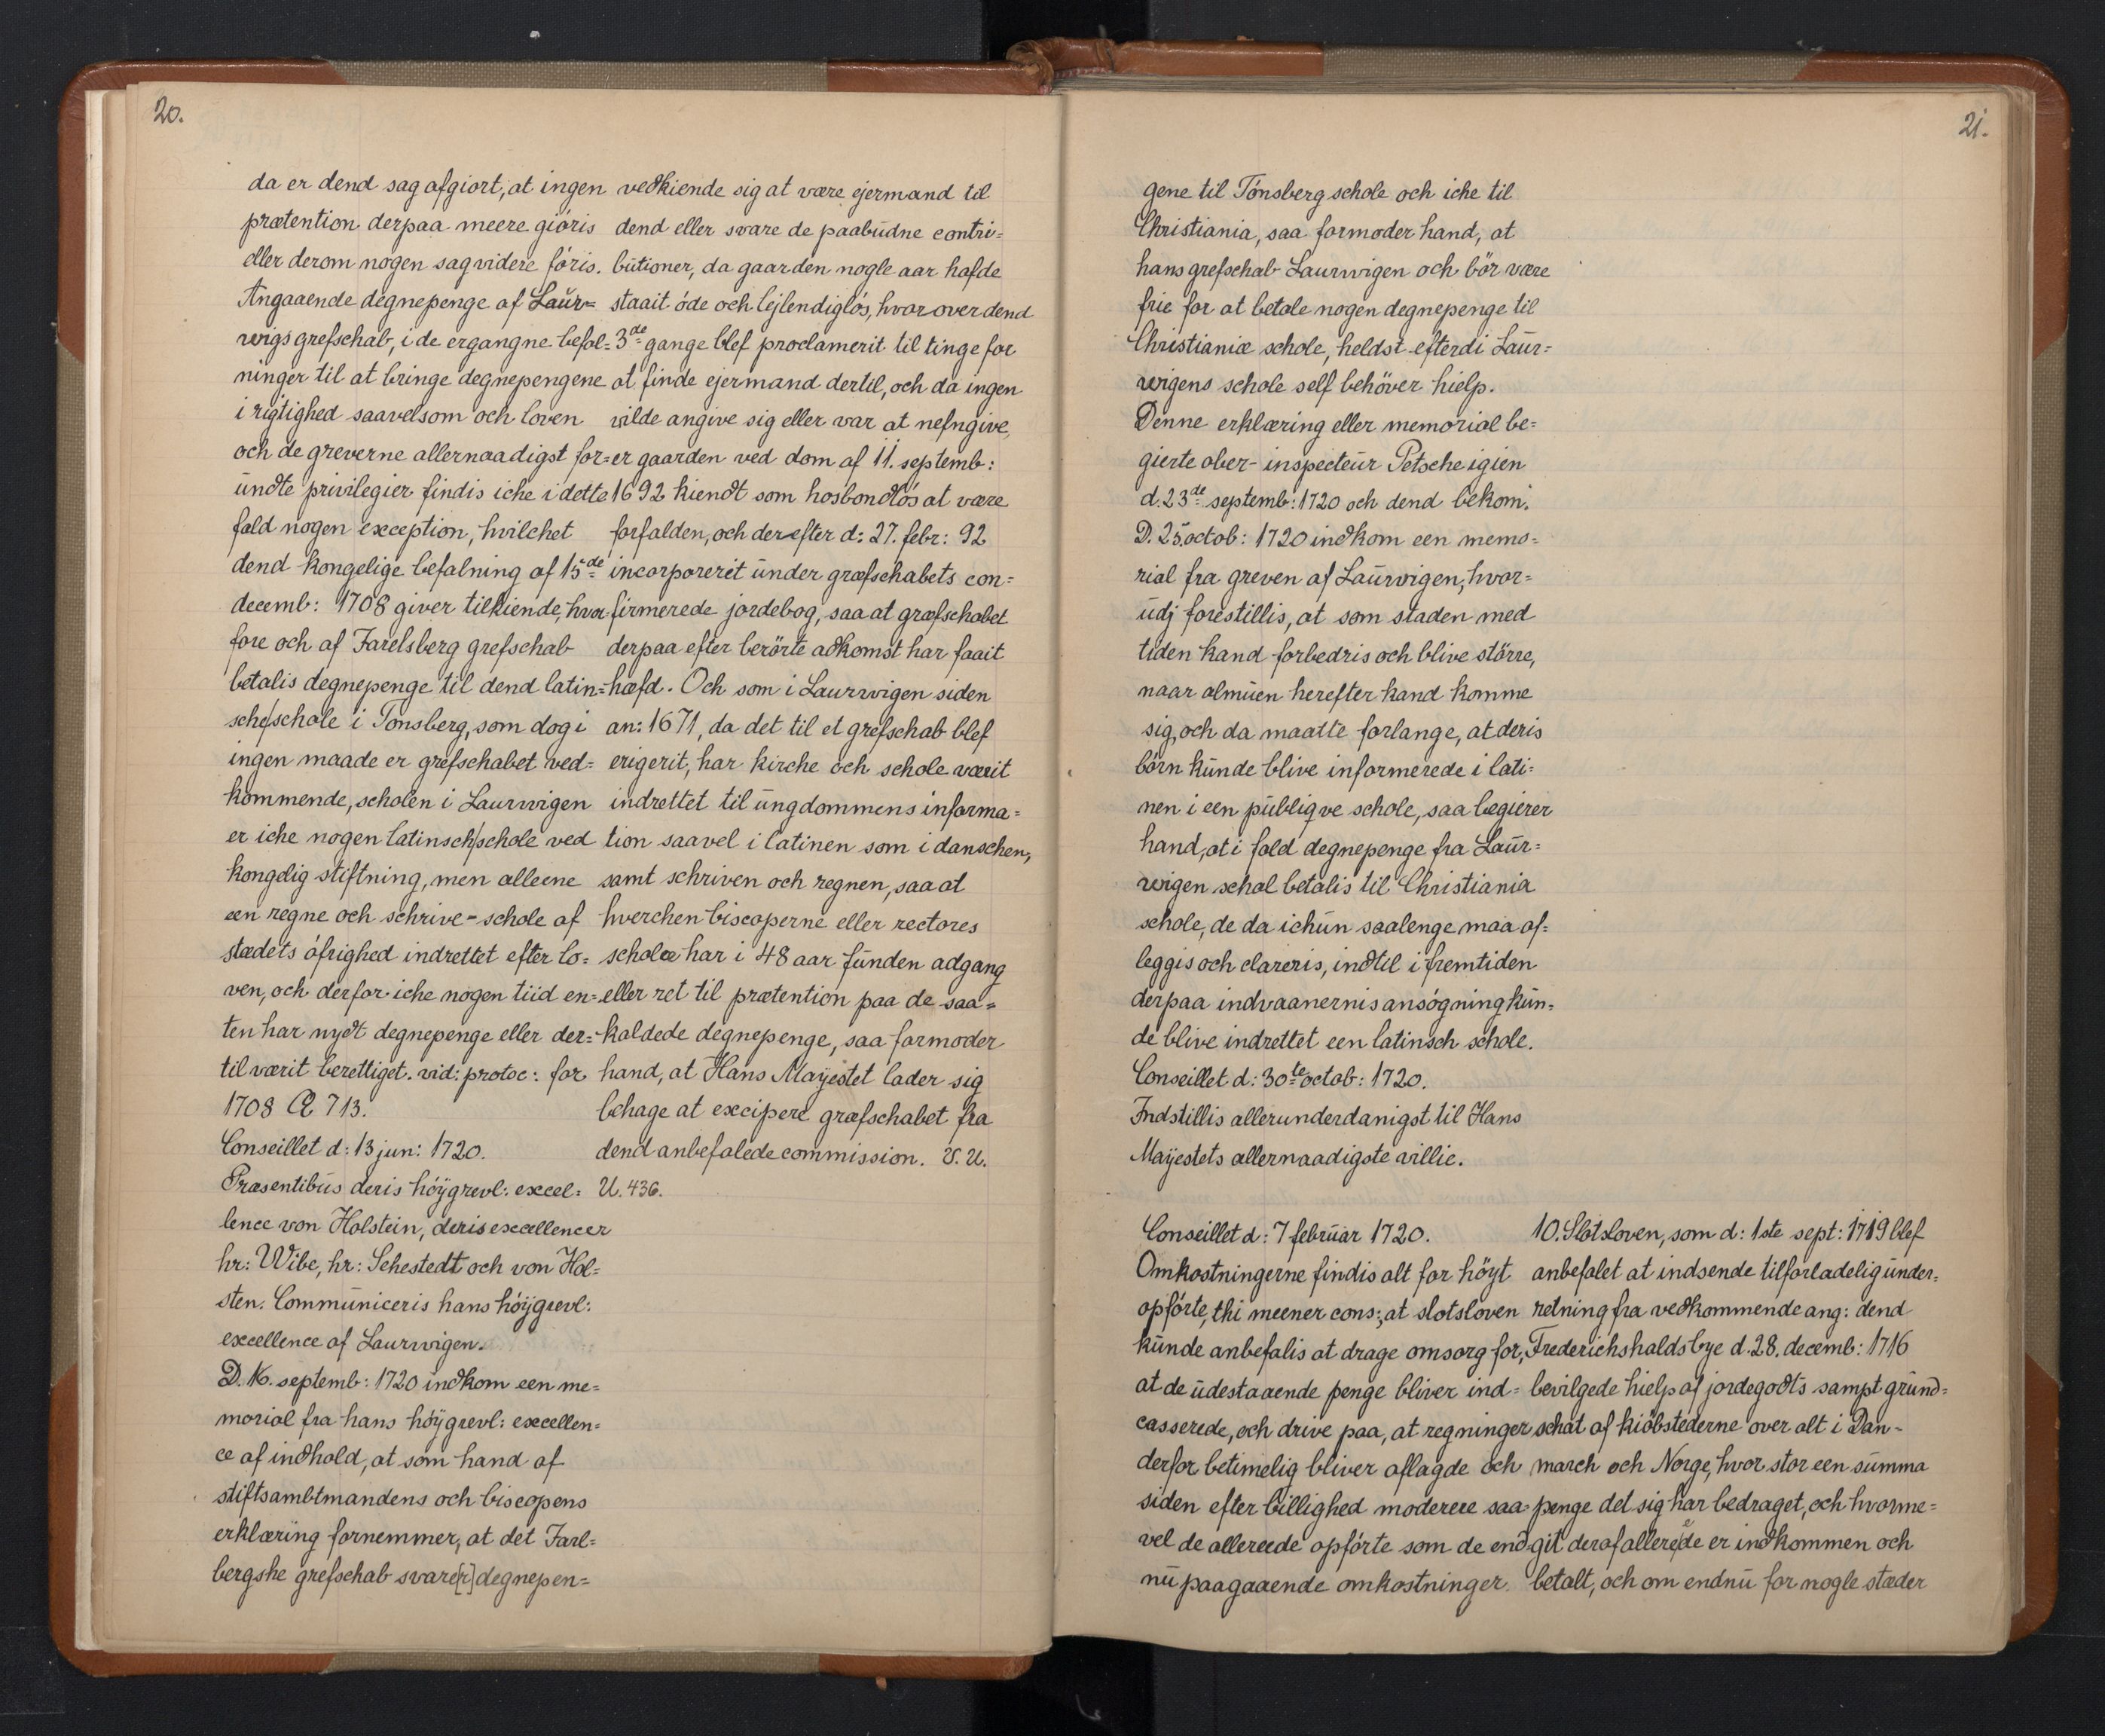 20.
da er dend sag afgiort, at ingen
prætention derpaa meere gióris
eller derom nogen sag videre fóris.
Angaaende degnepenge af Laur=
wigs grefschab, i de ergangne befal=
ninger til at bringe degnepengene
i rigtighed saavelsom och loven
och de greverne allernaadigst for=
undte privilegier findis iche i dette
fald nogen exception, hvilchet
dend kongelige befalning af 15de
decemb: 1708 giver tilkiende, hvor
fore och af Jarelsberg grefschab
betalis degnepenge til dend latin=
sche/schole i Tonsberg, som dog i
ingen maade er grefschabet ved=
kommende, scholen i Laurwigen
er iche nogen latinsch/schole ved
kongelig stiftning, men alleene
een regne och schrive-schole af
stædets ófrighed indrettet efter lo=
ven, och derfor iche nogen tiid en=
ten har nydt degnepenge eller der=
til værit berettiget. vid: protoc: for
1708 Æ 713.
Conseillet d: 13 jun: 1720.
Præsentibus deris hóÿgrevl: excel=
lence von Holstein, deris excellencer
hr: Wibe, hr: Sehestedt och von Hol=
sten. Communiceris hans hóÿgrevl:
excellence af Laurwigen.
D. 16. septemb: 1720 indkom een me=
morial fra hans hóÿgrevl: excellen=
ce af indhold, at som hand af
stiftsambtmandens och biscopens
erklæring fornemmer, at det Jarl=
bergshe grefschab svare[r] degnepen=
vedkiende sig at være ejermand til
dend eller svare de paabudne contri=
butioner, da gaarden nogle aar hafde
staait óde och lejlendiglós, hvor over dend
3de gange blef proclamerit til tinge for
at finde ejermand dertil, och da ingen
vilde angive sig eller var at nefngive,
er gaarden ved dom af 11. septemb:
1692 kiendt som hosbondlós at være
forfalden, och der efter d: 27. febr: 92
incorporerit under græfschabets con=
firmerede jordebog, saa at græfschabet
derpaa efter berórte adkomst har faait
hæfd. Och som i Laurwigen siden
an: 1671, da det til et grefschab blef
erigerit, har kirche och schole værit
indrettet til ungdommens informa=
tion saavel i latinen som i danschen,
samt schriven och regnen, saa at
hverchen biscoperne eller rectores
scholæ har i 48 aar funden adgang
eller ret til prætention paa de saa=
kaldede degnepenge, saa formoder
hand, at Hans Mayestet lader sig
behage at excipere græfschabet fra
dend anbefalede commission. V. U.
U. 436.
21.
gene til Tónsberg schole och iche til
Christiania, saa formoder hand, at
hans grefschab Laurwigen och bör være
frie for at betale nogen degnepenge til
Christianiæ schole, heldst efterdi Laur=
wigens schole self behöver hielp.
Denne erklæring eller memorial be=
gierte ober-inspecteur Petsche igien
d. 23de septemb: 1720 och dend bekom.
D. 25. octob: 1720 indkom een memo=
rial fra greven af Laurvigen, hvor=
udj forestillis, at som staden med
tiden kand forbedris och blive större,
naar almuen herefter kand komme
sig, och da maatte forlange, at deris
börn kunde blive informerede i lati=
nen i een publiqve schole, saa begierer
hand, at i fald degnepenge fra Laur=
wigen schal betalis til Christiania
schole, de da ichun saalenge maa af=
leggis och clareris, indtil i fremtiden
derpaa indvaanernis ansógning kun=
de blive indrettet een latinsch schole.
Conseillet d: 30te octob: 1720.
Indstillis allerunderdanigst til Hans
Mayestets allernaadigste villie.
Conseillet d: 7 februar 1720.
Omkostningerne findis alt for höyt
opfórte, thi meener cons:, at slotsloven
kunde anbefalis at drage omsorg for,
at de udestaaende penge bliver ind=
casserede, och drive paa, at regninger
derfor betimelig bliver aflagde och
siden efter billighed moderere saa
vel de allereede opfórte som de end
nu paagaaende omkostninger.
10. Slotsloven, som d: 1ste sept: 1719 blef
anbefalet at indsende tilforladelig under=
retning fra vedkommende ang: dend
Frederichshalds bye d. 28. decemb: 1716
bevilgede hielp af jordegodts sampt grund=
schat af kióbstederne over alt i Dan-
march och Norge, hvor stor een summa
penge det sig har bedraget, och hvorme=
git deraf allerede er indkommen och
betalt, och om endnu for nogle stæder